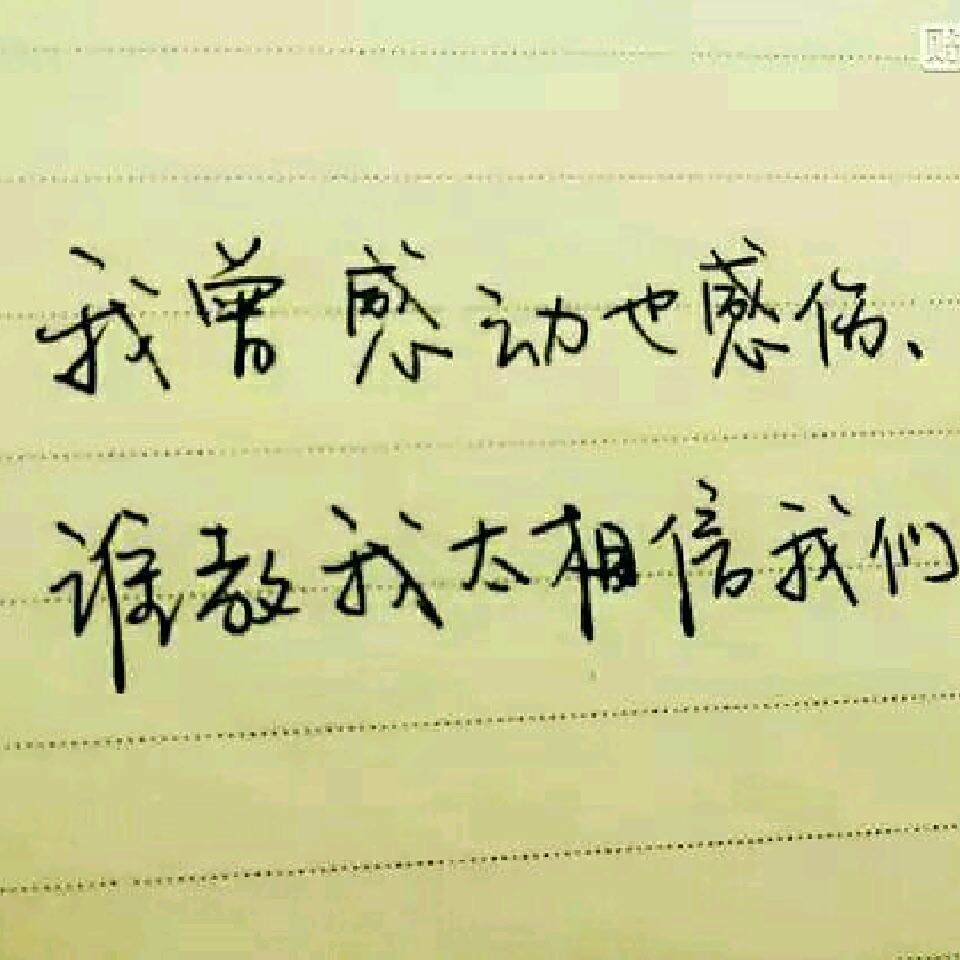 我曾感动也感伤、
谁教我太相信我们